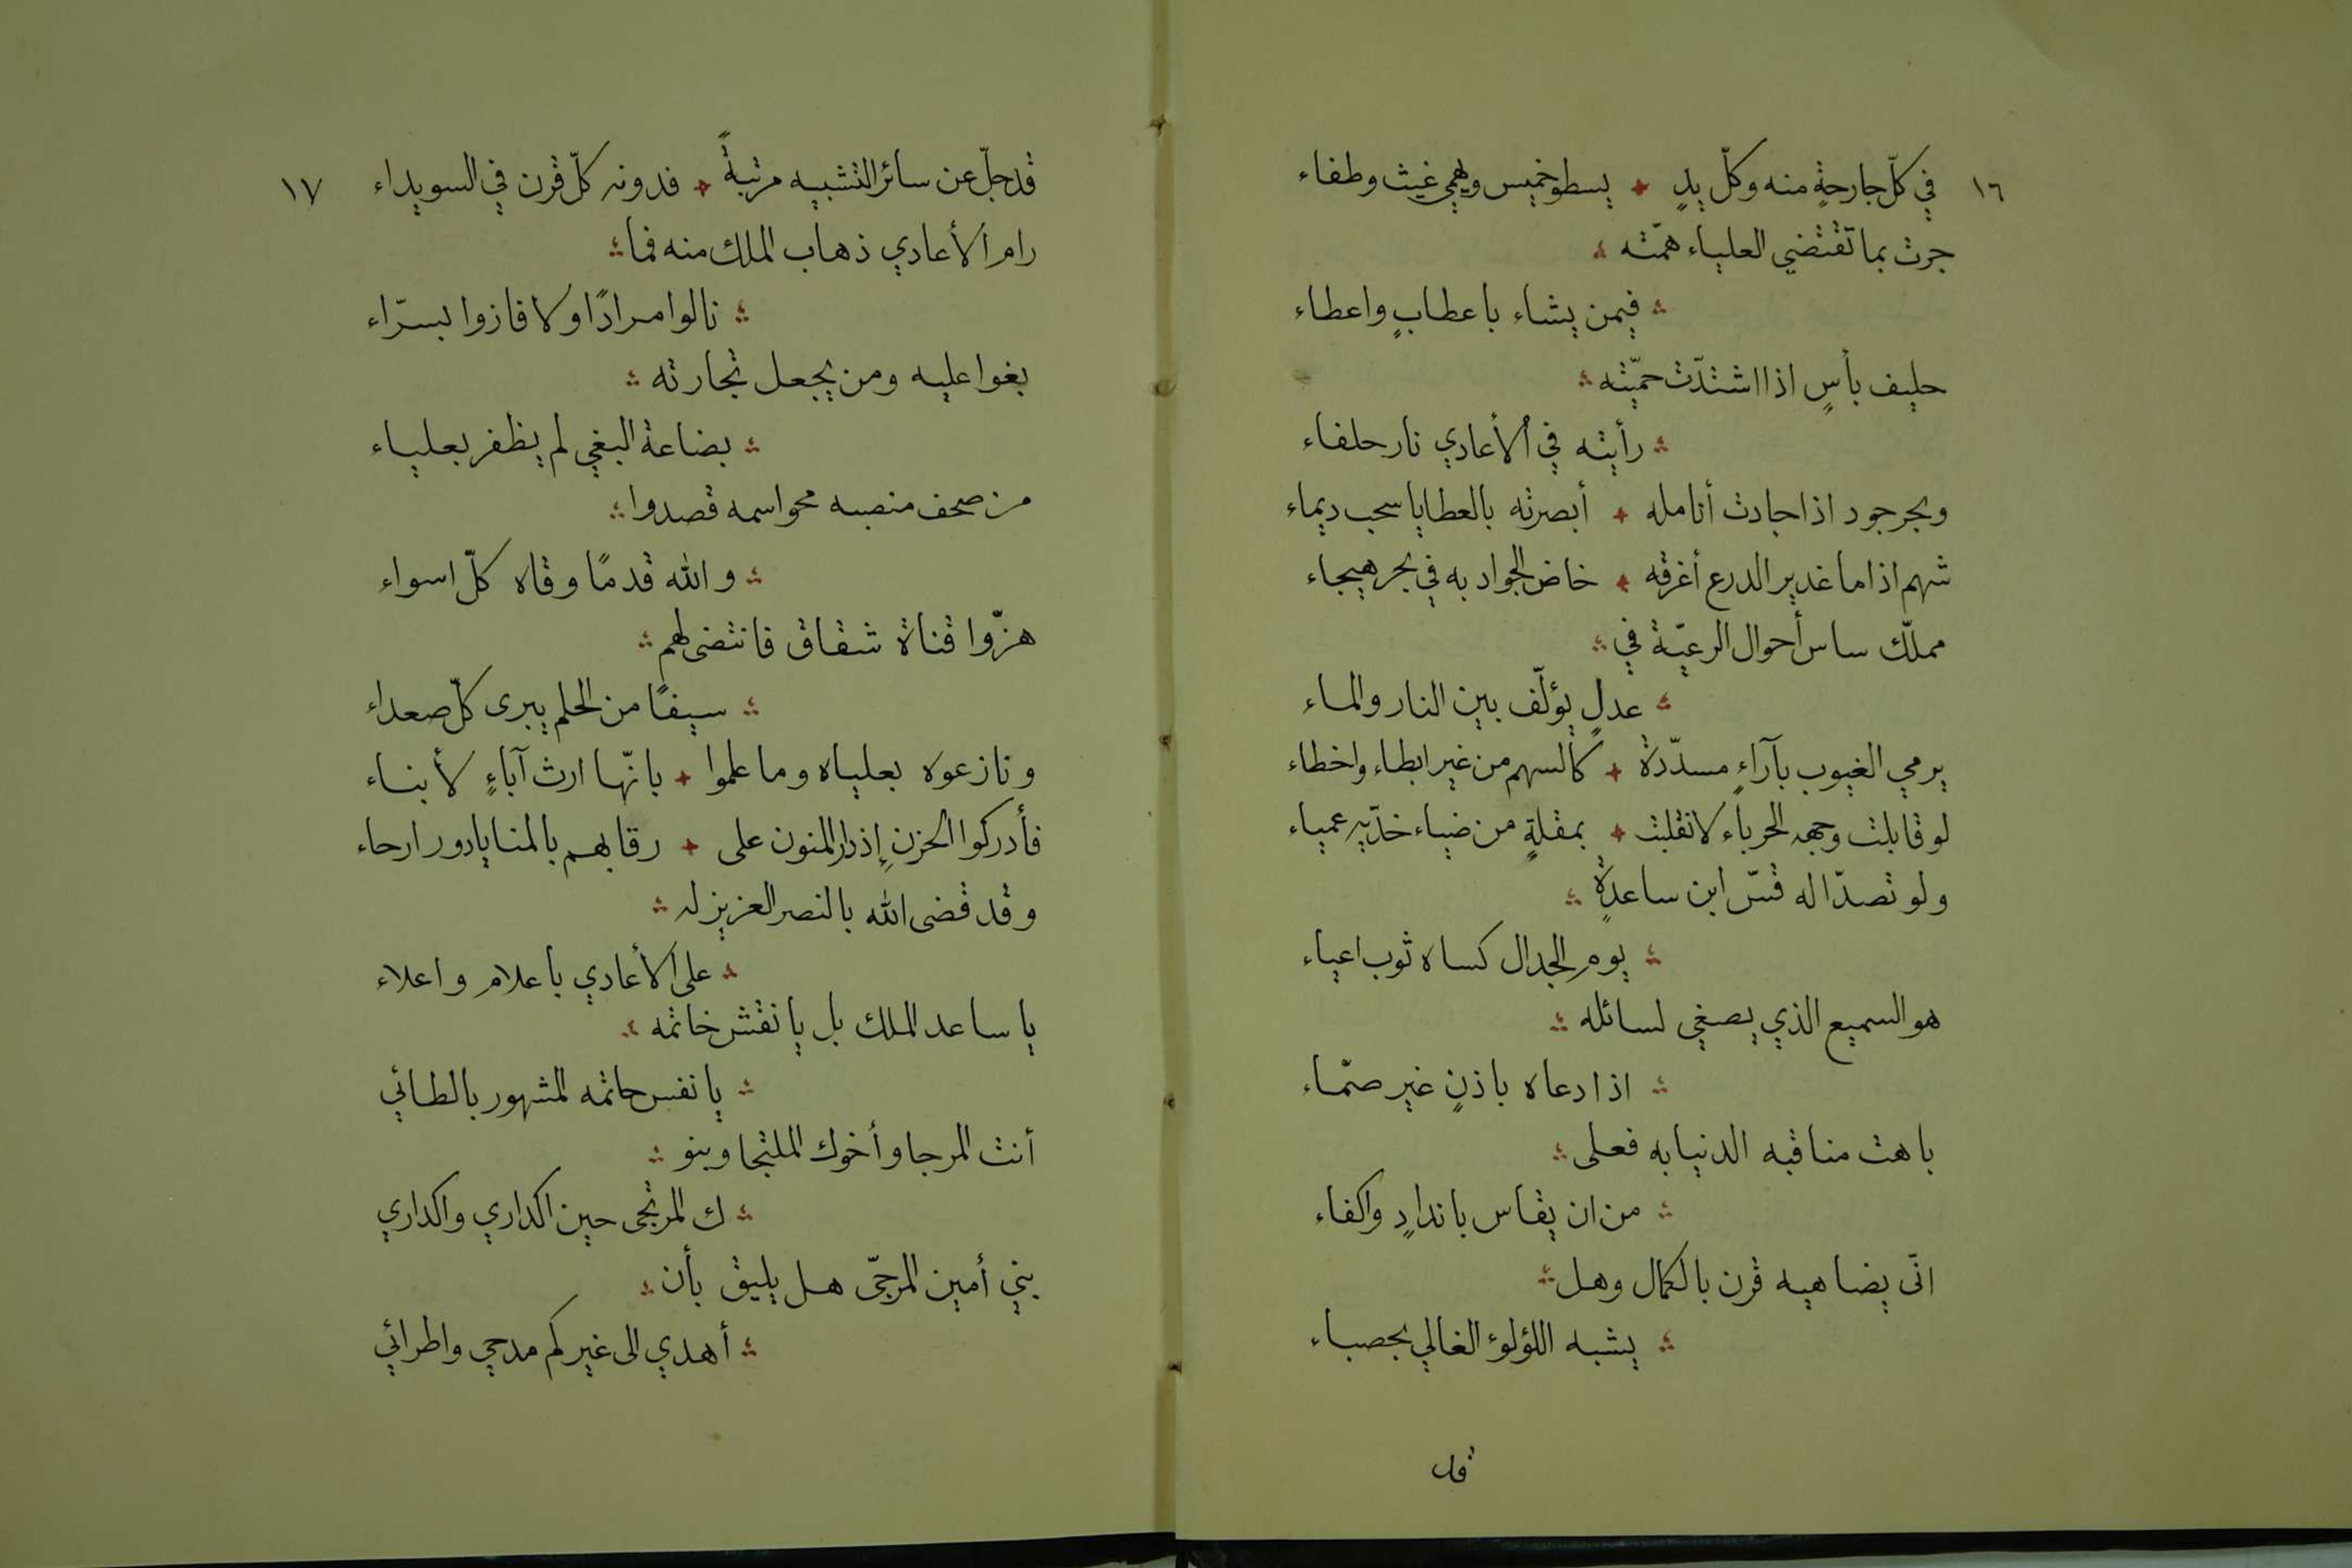 ١٦ في كلّ جارحةٍ منه وكلّ يدٍ يسطو خميس ويهمي غيث وطفاء
جرت بما تقتضي العلياء همّته
فيمن يشاء باعطابٍ واعطاء
حليف بأسٍ اذا اشتدّت حميّته
رأيته في الأعادي نار حلفاء
وبحر جود اذا جادت أنامله أبصرته بالعطايا سحب ديماء
شهم اذا ما غدير الدرع أغرقه خاض الجواد به في بحر هيجاء
مملّك ساس أحوال الرعيّة في
عدلٍ يؤلّف بين النار والماء
يرمي الغيوب بآراءٍ مسدّدة كالسهم من غير ابطاء واخطاء
لو قابلت وجهه الحرباء لانقلبت بمقلةٍ من ضياء خدّيه عمياء
ولو تصدّا له قسّ ابن ساعدةٍ
يوم الجدال كساه ثوب اعياء
هو السميع الذي يصغي لسائله
اذا دعاه باذنٍ غير صمّاء
باهت مناقبه الدنيا به فعلى
من ان يقاس باندادٍ واكفاء
انّى يضاهيه قرن بالكمال وهل
يشبه اللؤلؤ الغالي بحصباء
قد
قد جلّ عن سائر التشبيه مرتبةً فدونه كلّ قرن في السويداء ١٧
رام الأعادي ذهاب الملك منه فما
نالوا مرادًا ولا فازوا بسرّاء
بغوا عليه ومن يجعل تجارته
بضاعة البغي لم يظفر بعلياء
من صحف منصبه محو اسمه قصدوا
والله قدمًا وقاه كلّ اسواء
هزّوا قناة شقاق فانتضى لهم
سيفًا من الحلم يبرى كلّ صعداء
ونازعوه بعلياه وما علموا بانّها ارث آباءٍ لأبناء
فأدركوا الحزن إذ دار المنون على رقابهم بالمنايا دور ارحاء
وقد قضى الله بالنصر العزيز له
على الأعادي باعلام واعلاء
يا ساعد الملك بل يا نقش خاتمه
يا نفس حاتمه المشهور بالطائي
أنت المرجا وأخوك الملتجا وبنو
ك المرتجى حين اكداري واكداري
بني أمين المرجّى هل يليق بأن
أهدي الى غيركم مدحي واطرائي